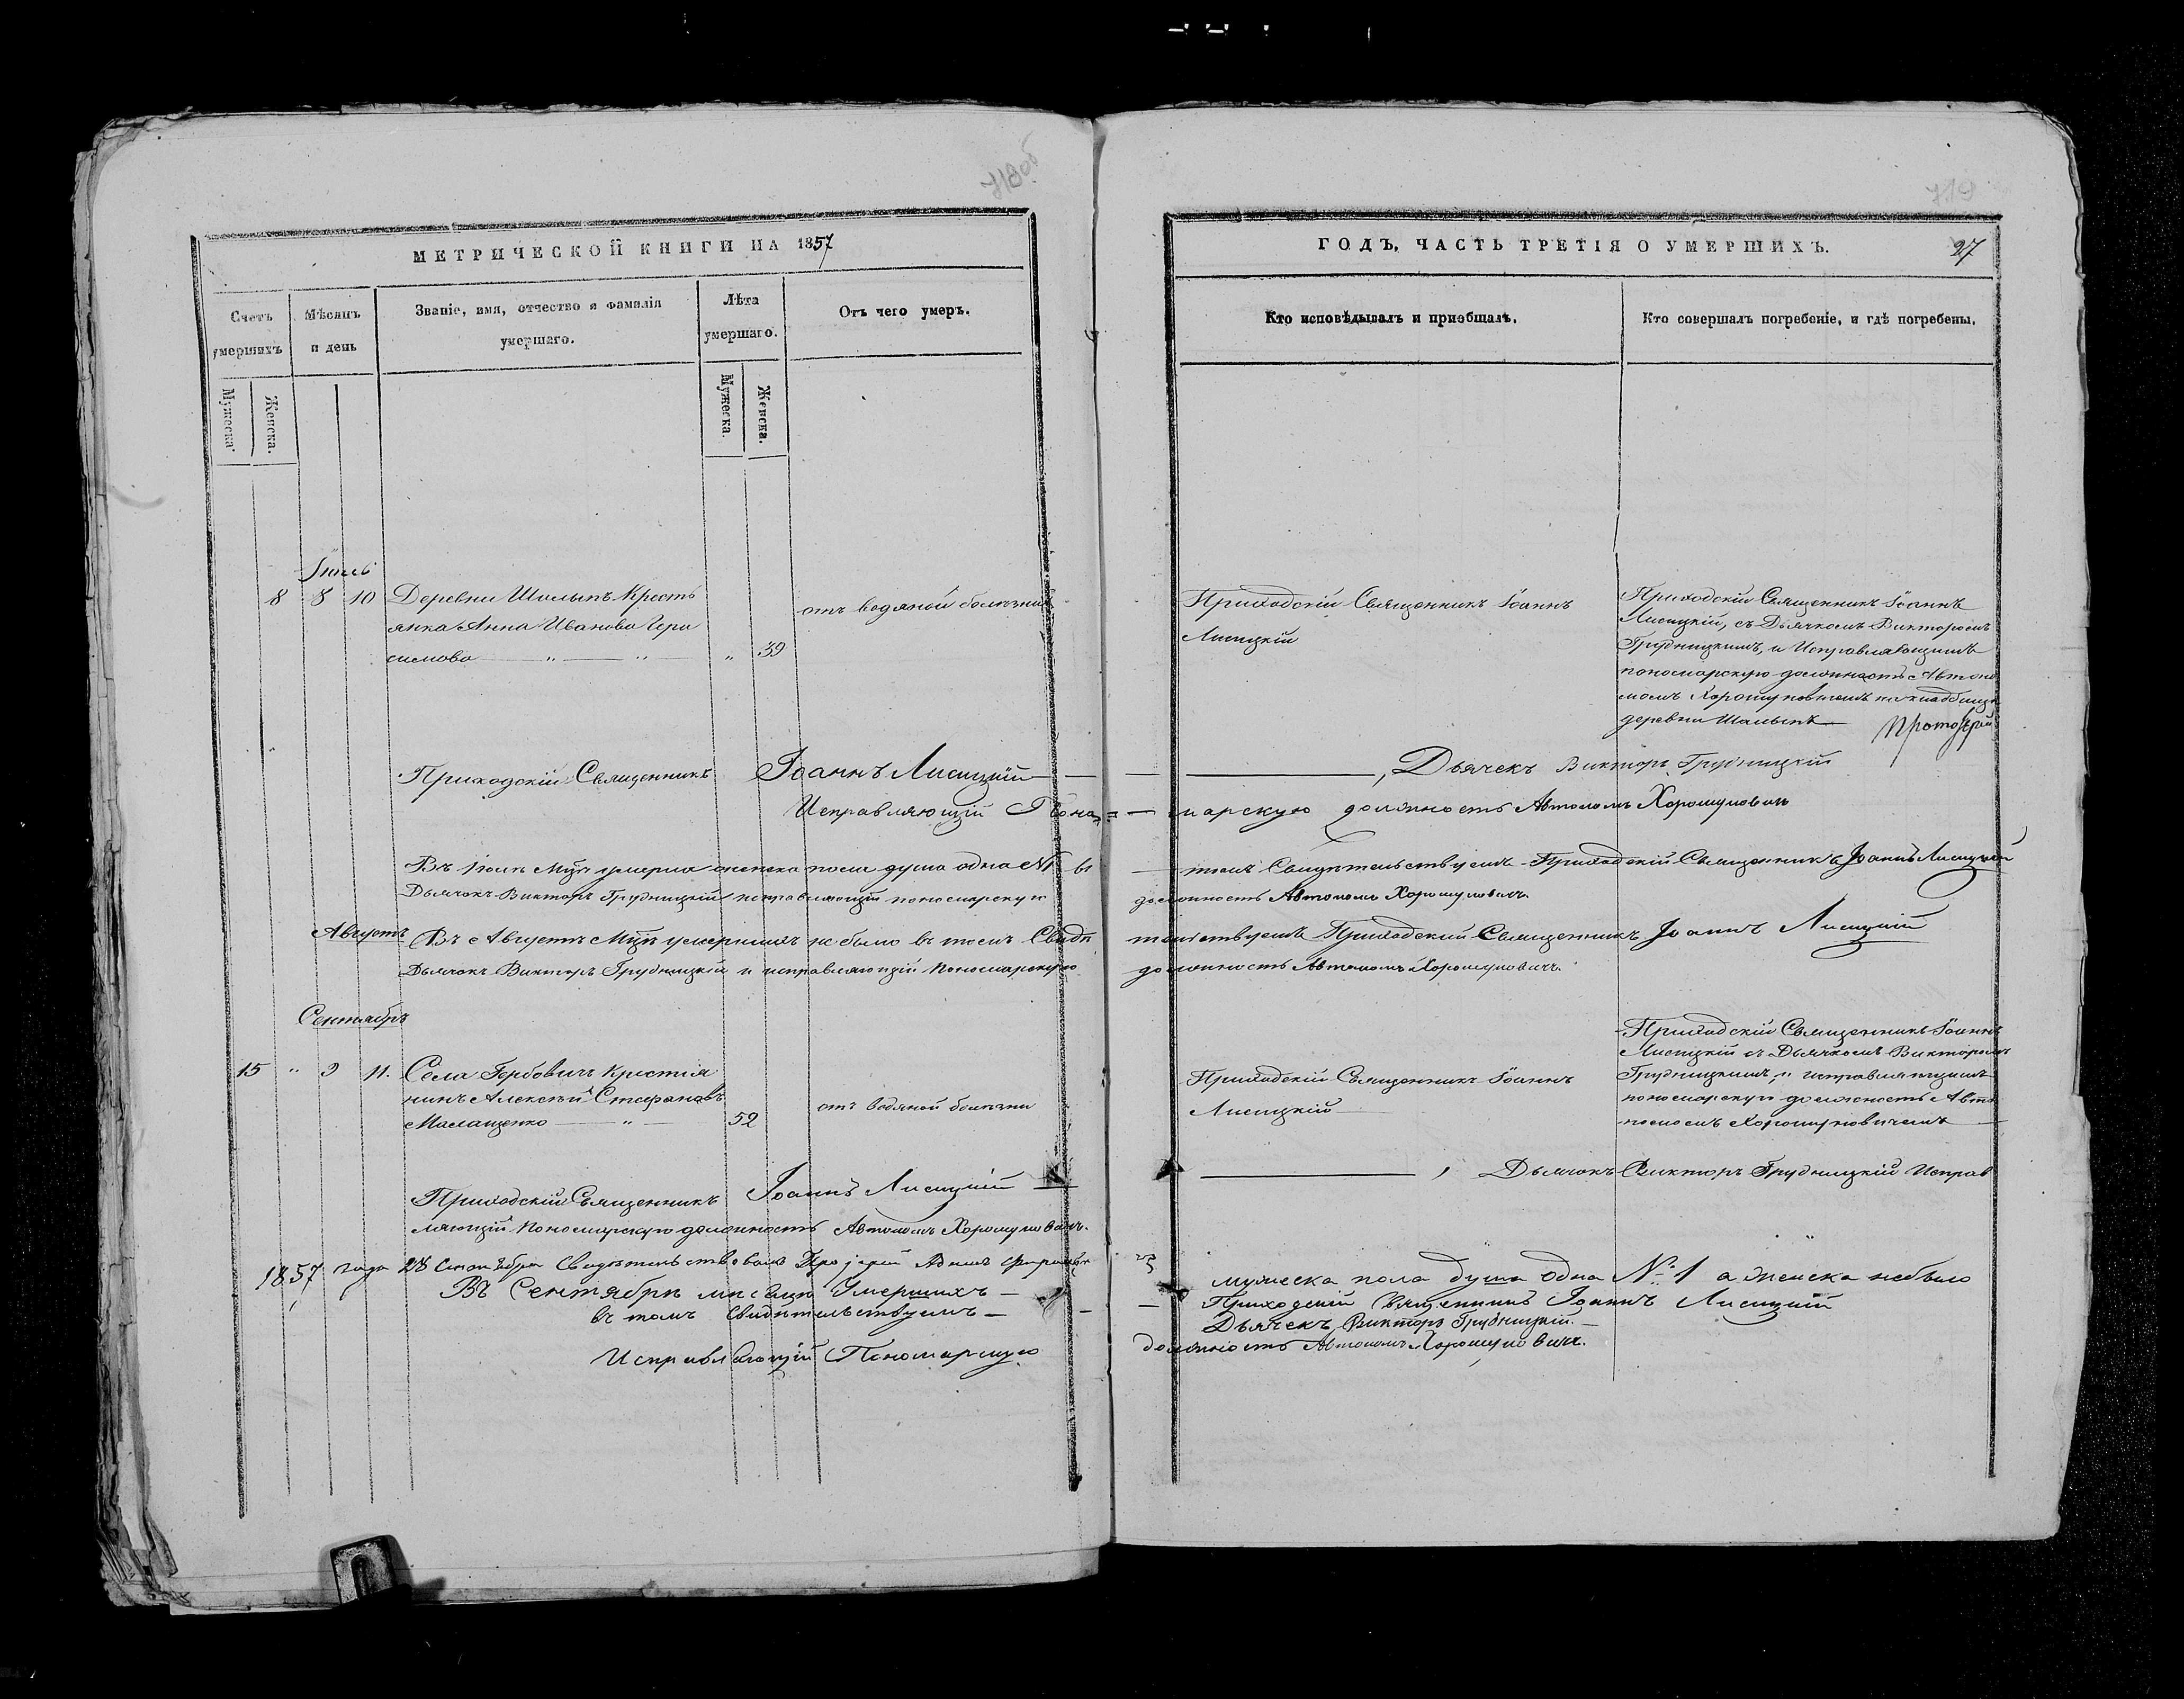 718об
МЕТРИЧЕСКОЙ КНИГИ НА 1857
Счетъ умершихъ
Мѣсяцъ и день
Званіе, имя, отчество и фамилія умершаго.
Лѣта умершаго.
Отъ чего умеръ.
Мужеска.
Женска.
Мужеска.
Женска.
Іюль
8 8 10 Деревни Шолыпъ Кресть
янка Анна Иванова Гера
симова „ „ „ 39
отъ водяной болѣзни
Приходскій Священникъ Іоаннъ Лисицкій
Исправляющій Поно=
Въ Іюлѣ М҃цѣ умерла женска пола душа одна №1 въ
Дьячокъ Викторъ Грудницкій исправляющій пономарскую
Августъ
Въ Августѣ М҃цѣ умершихъ не было въ томъ Свидѣ
Дьячокъ Викторъ Грудницкій и исправляющій пономарскую
Сентябрь
15 „ 9 11. Села Горбовичъ Крестья
нинъ Алексѣй Стефановъ
Малащенко „ 52
отъ водяной болѣзни
Приходскій Священникъ Іоаннъ Лисицкій
ляющій Пономарскую должность Автономъ Хорошуновичъ.
1857 года 28 Сентября Свидѣтельствовалъ Протоіерей
Въ Сентябрѣ мѣсяцѣ Умершихъ
въ томъ Свидѣтельствуемъ
Исправляющій Пономарскую
719
ГОДЪ, ЧАСТЬ ТРЕТІЯ О УМЕРШИХЪ.
27
Кто исповѣдывалъ и пріобщалъ.
Кто совершалъ погребеніе, и гдѣ погребены.
Приходскій Священникъ Іоаннъ
Лисицкій
Приходскій Священникъ Іоаннъ
Лисицкій, съ Дьячкомъ Викторомъ
Грудницкимъ, и Исправляющимъ
пономарскую должность Автоно
момъ Хорошуновичемъ на кладбищѣ
деревни Шолыпъ
Протоіерей
Дьячекъ Викторъ Грудницкій
марскую должность Автономъ Хорошуновичъ
томъ Свидѣтельствуемъ Приходскій Священникъ Іоаннъ Лисицкій
должность Автономъ Хорошуновичъ.
тельствуемъ Приходскій Священникъ Іоаннъ Лисицкій
должность Автономъ Хорошуновичъ.
Приходскій Священникъ Іоаннъ
Лисицкій
Приходскій Священникъ Іоаннъ
Лисицкій съ Дьячкомъ Викторомъ
Грудницкимъ, и исправляющимъ
пономарскую должность Авто
номомъ Хорошуновичемъ
Дьячокъ Викторъ Грудницкій Исправ
мужеска пола душа одна №1 а женска небыло
Приходскій Священникъ Іоаннъ Лисицкій
Дьячекъ Викторъ Грудницкій
должность Автономъ Хорошуновичъ.